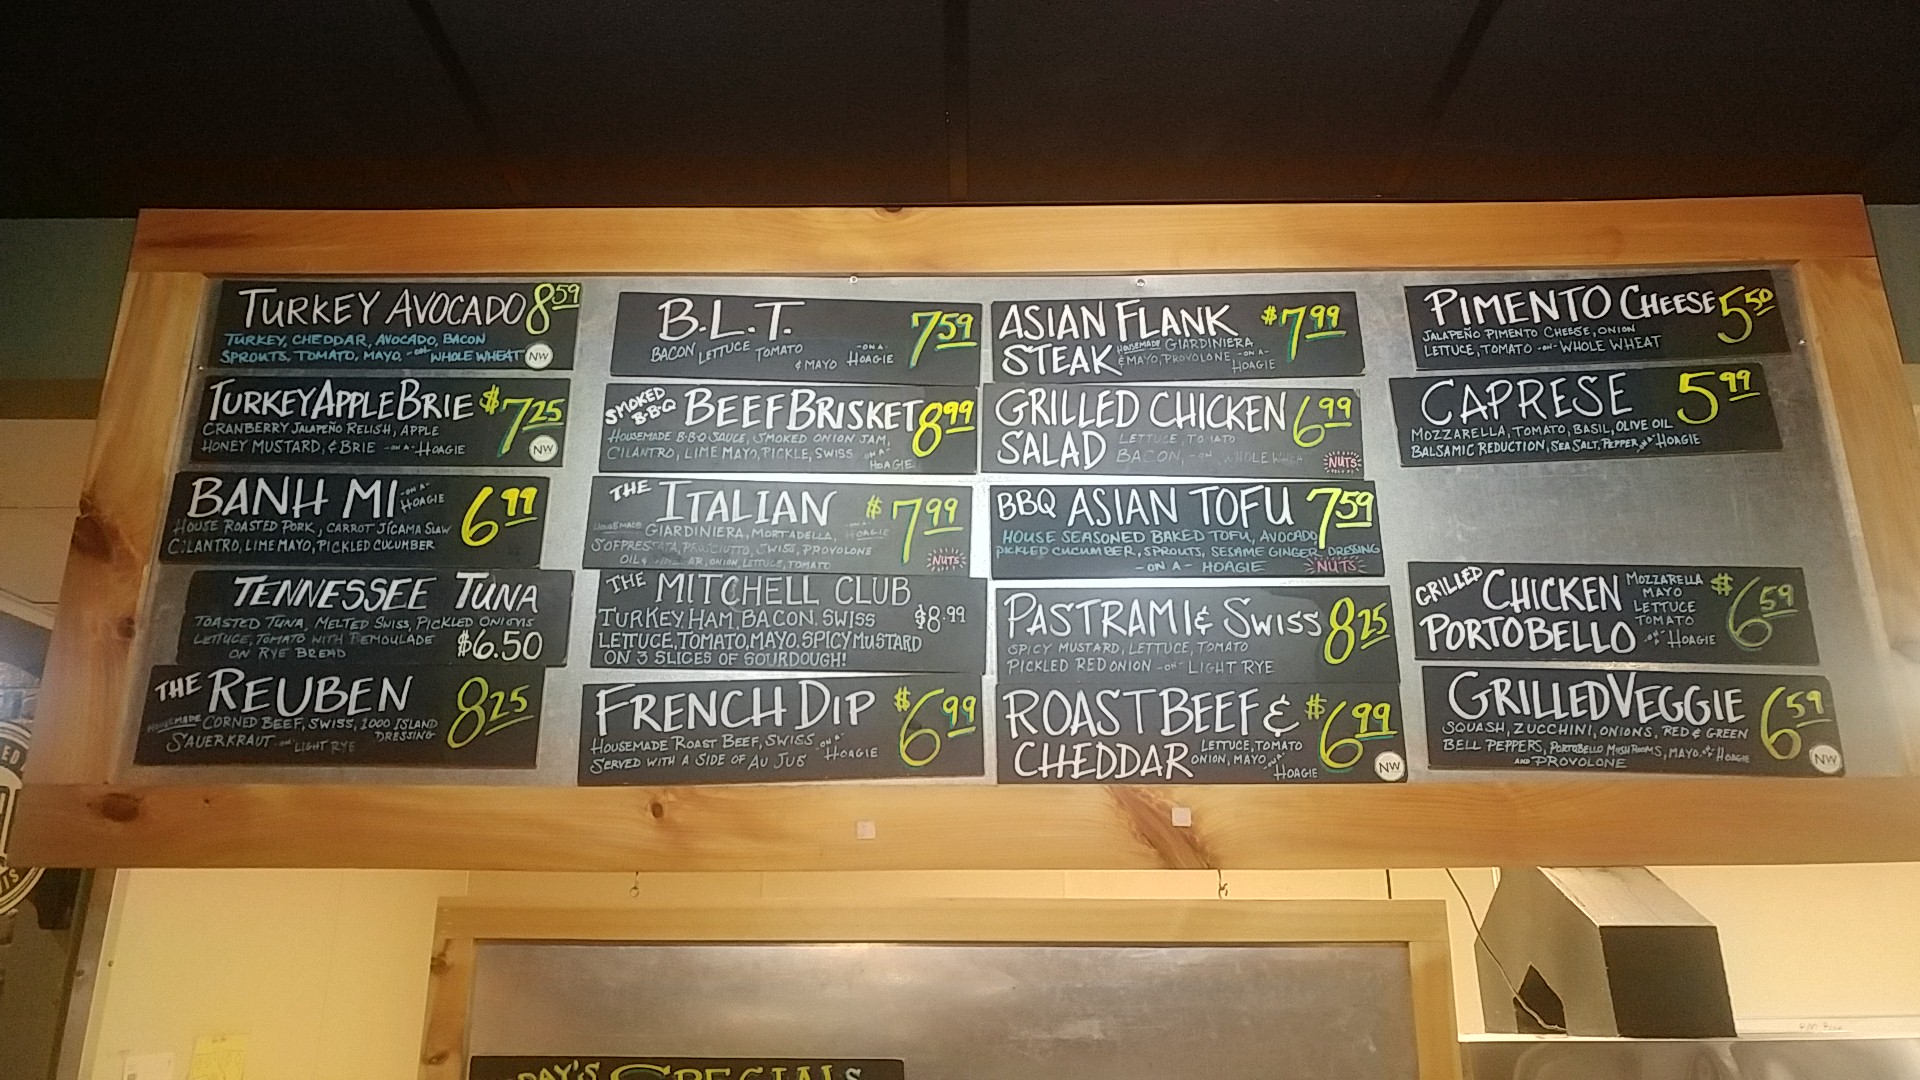 TURKEY AVOCADO 8.59
TURKEY, CHEDDAR, AVOCADO, BACON
SPROUTS, TOMATO, MAYO, -ON- WHOLE WHEAT NW
TURKEY APPLE BRIE $7.25
CRANBERRY JALAPEÑO RELISH, APPLE
HONEY MUSTARD, & BRIE -ON A- HOAGIE NW
BANH MI -ON A- HOAGIE 6.99
HOUSE ROASTED PORK, CARROT JICAMA SLAW
CILANTRO, LIME MAYO, PICKLED CUCUMBER
TENNESSEE TUNA
TOASTED TUNA, MELTED SWISS, PICKLED ONIONS
LETTUCE, TOMATO WITH REMOULADE
ON RYE BREAD $6.50
THE REUBEN 8.25
HOUSEMADE CORNED BEEF, SWISS, 1000 ISLAND
DRESSING
SAUERKRAUT -ON- LIGHT RYE
B.L.T. 7.59
BACON LETTUCE TOMATO
& MAYO -ON A- HOAGIE
SMOKED B·B·Q BEEF BRISKET 8.99
HOUSEMADE B·B·Q SAUCE, SMOKED ONION JAM,
CILANTRO, LIME MAYO, PICKLE, SWISS -ON A-
HOAGIE
THE ITALIAN $7.99
HOUSEMADE GIARDINIERA, MORTADELLA, -ON A- HOAGIE
SOPRESSATA, PROSCIUTTO, SWISS, PROVOLONE
OIL & ONION, LETTUCE, TOMATO NUTS
THE MITCHELL CLUB
TURKEY HAM, BACON, SWISS $8.99
LETTUCE, TOMATO, MAYO, SPICY MUSTARD
ON 3 SLICES OF SOURDOUGH!
FRENCH DIP $6.99
HOUSEMADE ROAST BEEF, SWISS -ON A-
SERVED WITH A SIDE OF AU JUS HOAGIE
ASIAN FLANK $7.99
STEAK HOUSEMADE GIARDINIERA
& MAYO, PROVOLONE -ON A-
HOAGIE
GRILLED CHICKEN 6.99
SALAD LETTUCE, TOMATO
BACON, -ON- WHOLE WHEAT NUTS
BBQ ASIAN TOFU 7.59
HOUSE SEASONED BAKED TOFU, AVOCADO
PICKLED CUCUMBER, SPROUTS, SESAME GINGER DRESSING
-ON A- HOAGIE NUTS
PASTRAMI & SWISS 8.25
SPICY MUSTARD, LETTUCE, TOMATO
PICKLED RED ONION -ON- LIGHT RYE
ROAST BEEF & $6.99
CHEDDAR LETTUCE, TOMATO
ONION, MAYO -ON A-
HOAGIE NW
PIMENTO CHEESE 5.50
JALAPEÑO PIMENTO CHEESE, ONION
LETTUCE, TOMATO -ON- WHOLE WHEAT
CAPRESE 5.99
MOZZARELLA, TOMATO, BASIL, OLIVE OIL
BALSAMIC REDUCTION, SEA SALT, PEPPER -ON A- HOAGIE
GRILLED CHICKEN $6.59
PORTOBELLO
MOZZARELLA
MAYO
LETTUCE
TOMATO
-ON A- HOAGIE
GRILLED VEGGIE 6.59
SQUASH, ZUCCHINI, ONIONS, RED & GREEN
BELL PEPPERS, PORTOBELLO MUSHROOMS, MAYO -ON A- HOAGIE
AND PROVOLONE NW
DAY'S SPECIALS